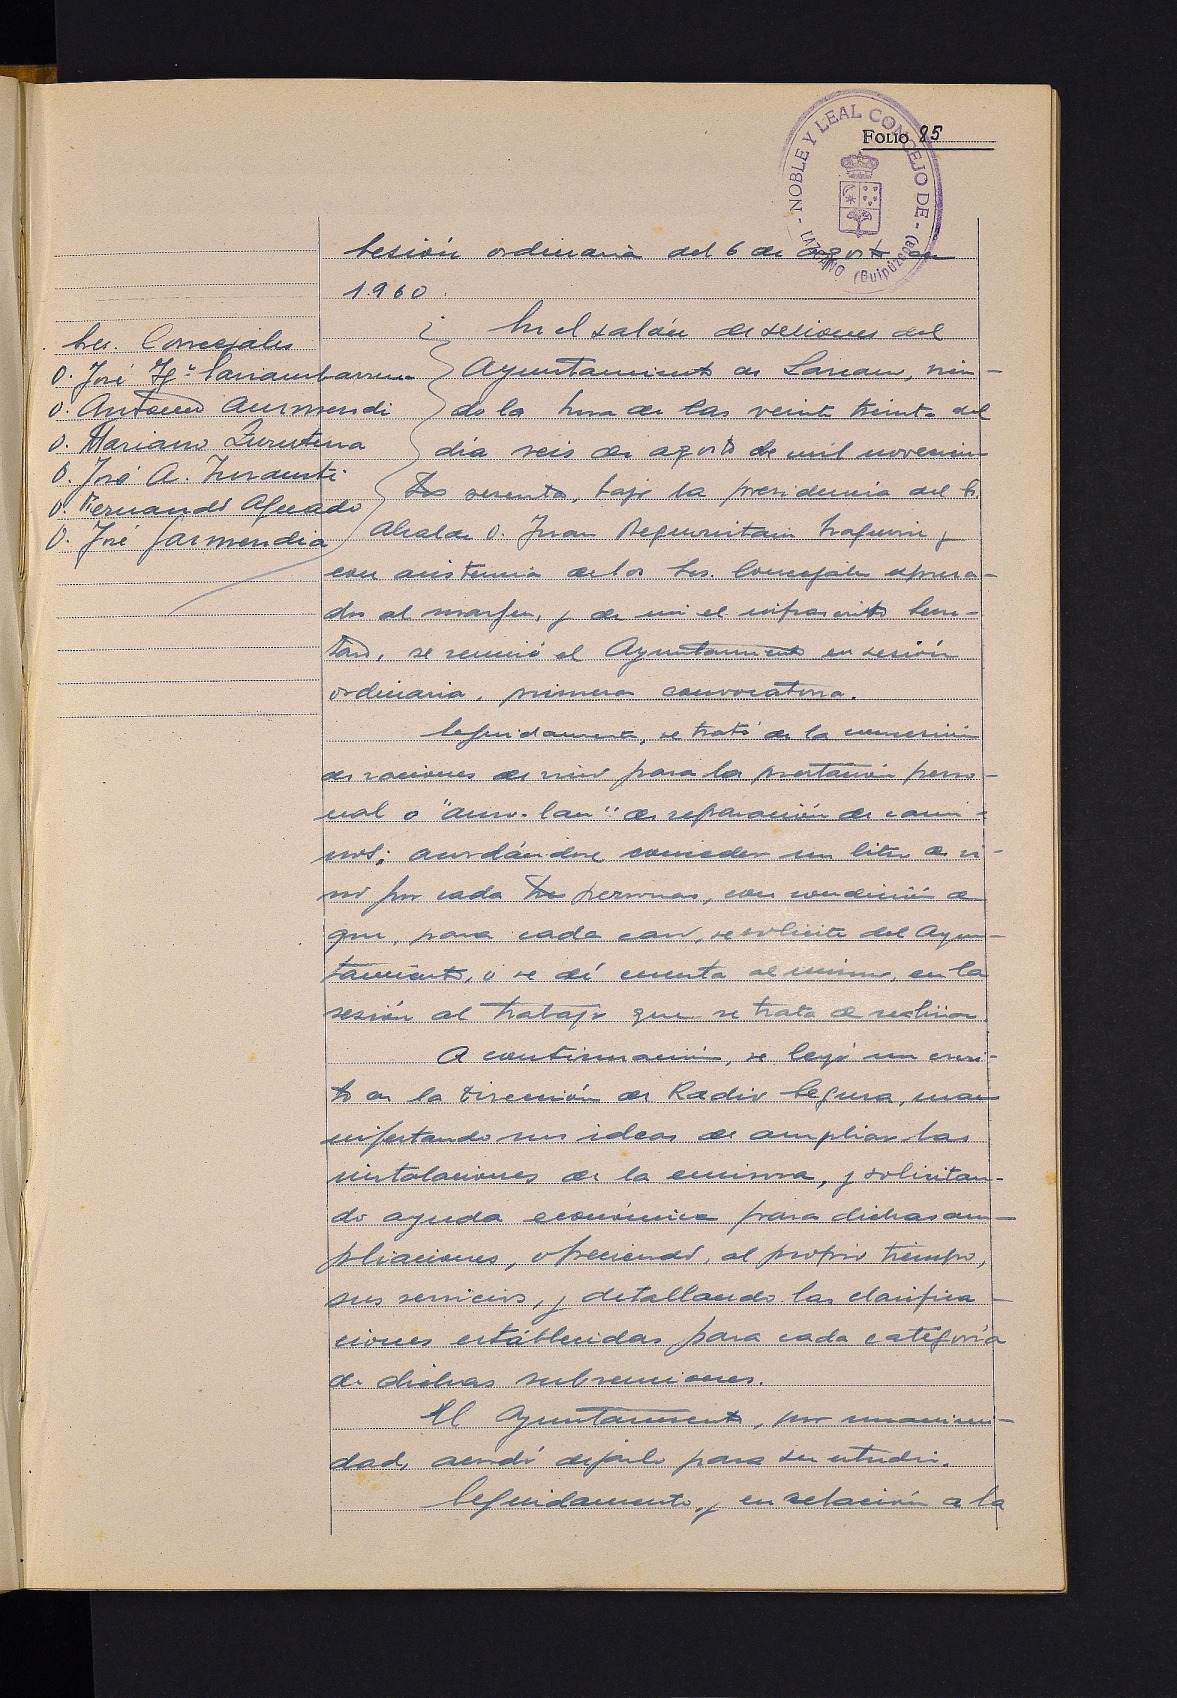 NOBLE Y LEAL CONCEJO DE
LAZCANO (Guipúzcoa)
FOLIO 85
Sesión ordinaria del 6 de agosto de
1.960.
Sres. Concejales
D. José
D. Antonio Aurmendi
D. Mariano Zurutuza
D. José A. Irurausti
D. Fernando Aguado
D. José Garmendia
En el salón de sesiones del
Ayuntamiento de Lazcano, sien-
do la hora de las veinte treinta del
día seis de agosto de mil novecien-
tos sesenta, bajo la presidencia del Sr.
Alcalde D. Juan y
con asistencia de los Sres. Concejales expresa-
dos al margen, y de mi el infrascrito Secre-
tario, se reunió el Ayuntamiento en sesión
ordinaria, primera convocatoria.
Seguidamente, se trató de la concesión
de raciones de vino para la prestación perso-
nal o "auzo-lan" de reparación de cami-
nos; acordándose conceder un litro de vi-
no por cada tres personas, con condición de
que, para cada caso, se solicite del Ayun-
tamiento, o se dé cuenta al mismo, en la
sesión al trabajo que se trata de realizar.
A continuación, se leyó un escri-
to de la Dirección de Radio Segura, man
nifestando sus ideas de ampliar las
instalaciones de la emisora, y solicitan-
do ayuda económica para dichas am-
pliaciones, ofreciendo, al propio tiempo,
sus servicios, y detallando las clasifica-
ciones establecidas para cada categoría
de dichas subvenciones.
El Ayuntamiento, por unanimi-
dad, acordó dejarlo para su estudio.
Seguidamente, y en relación a la